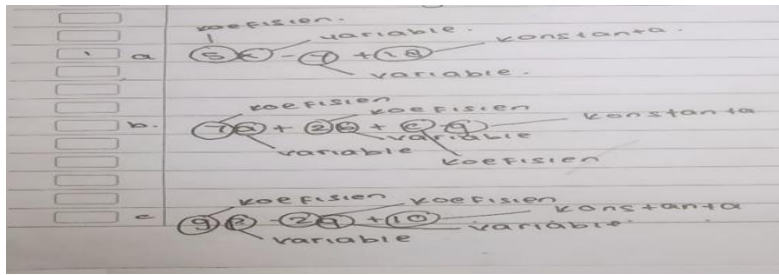 koefisien.
variable. konstanta.
a 5x - y + 18
variable.
koefisien koefisien konstanta
b. 7a + 2b +
variable variable
koefisien
koefisien koefisien konstanta
c 9p - 2q + 10
variable variable